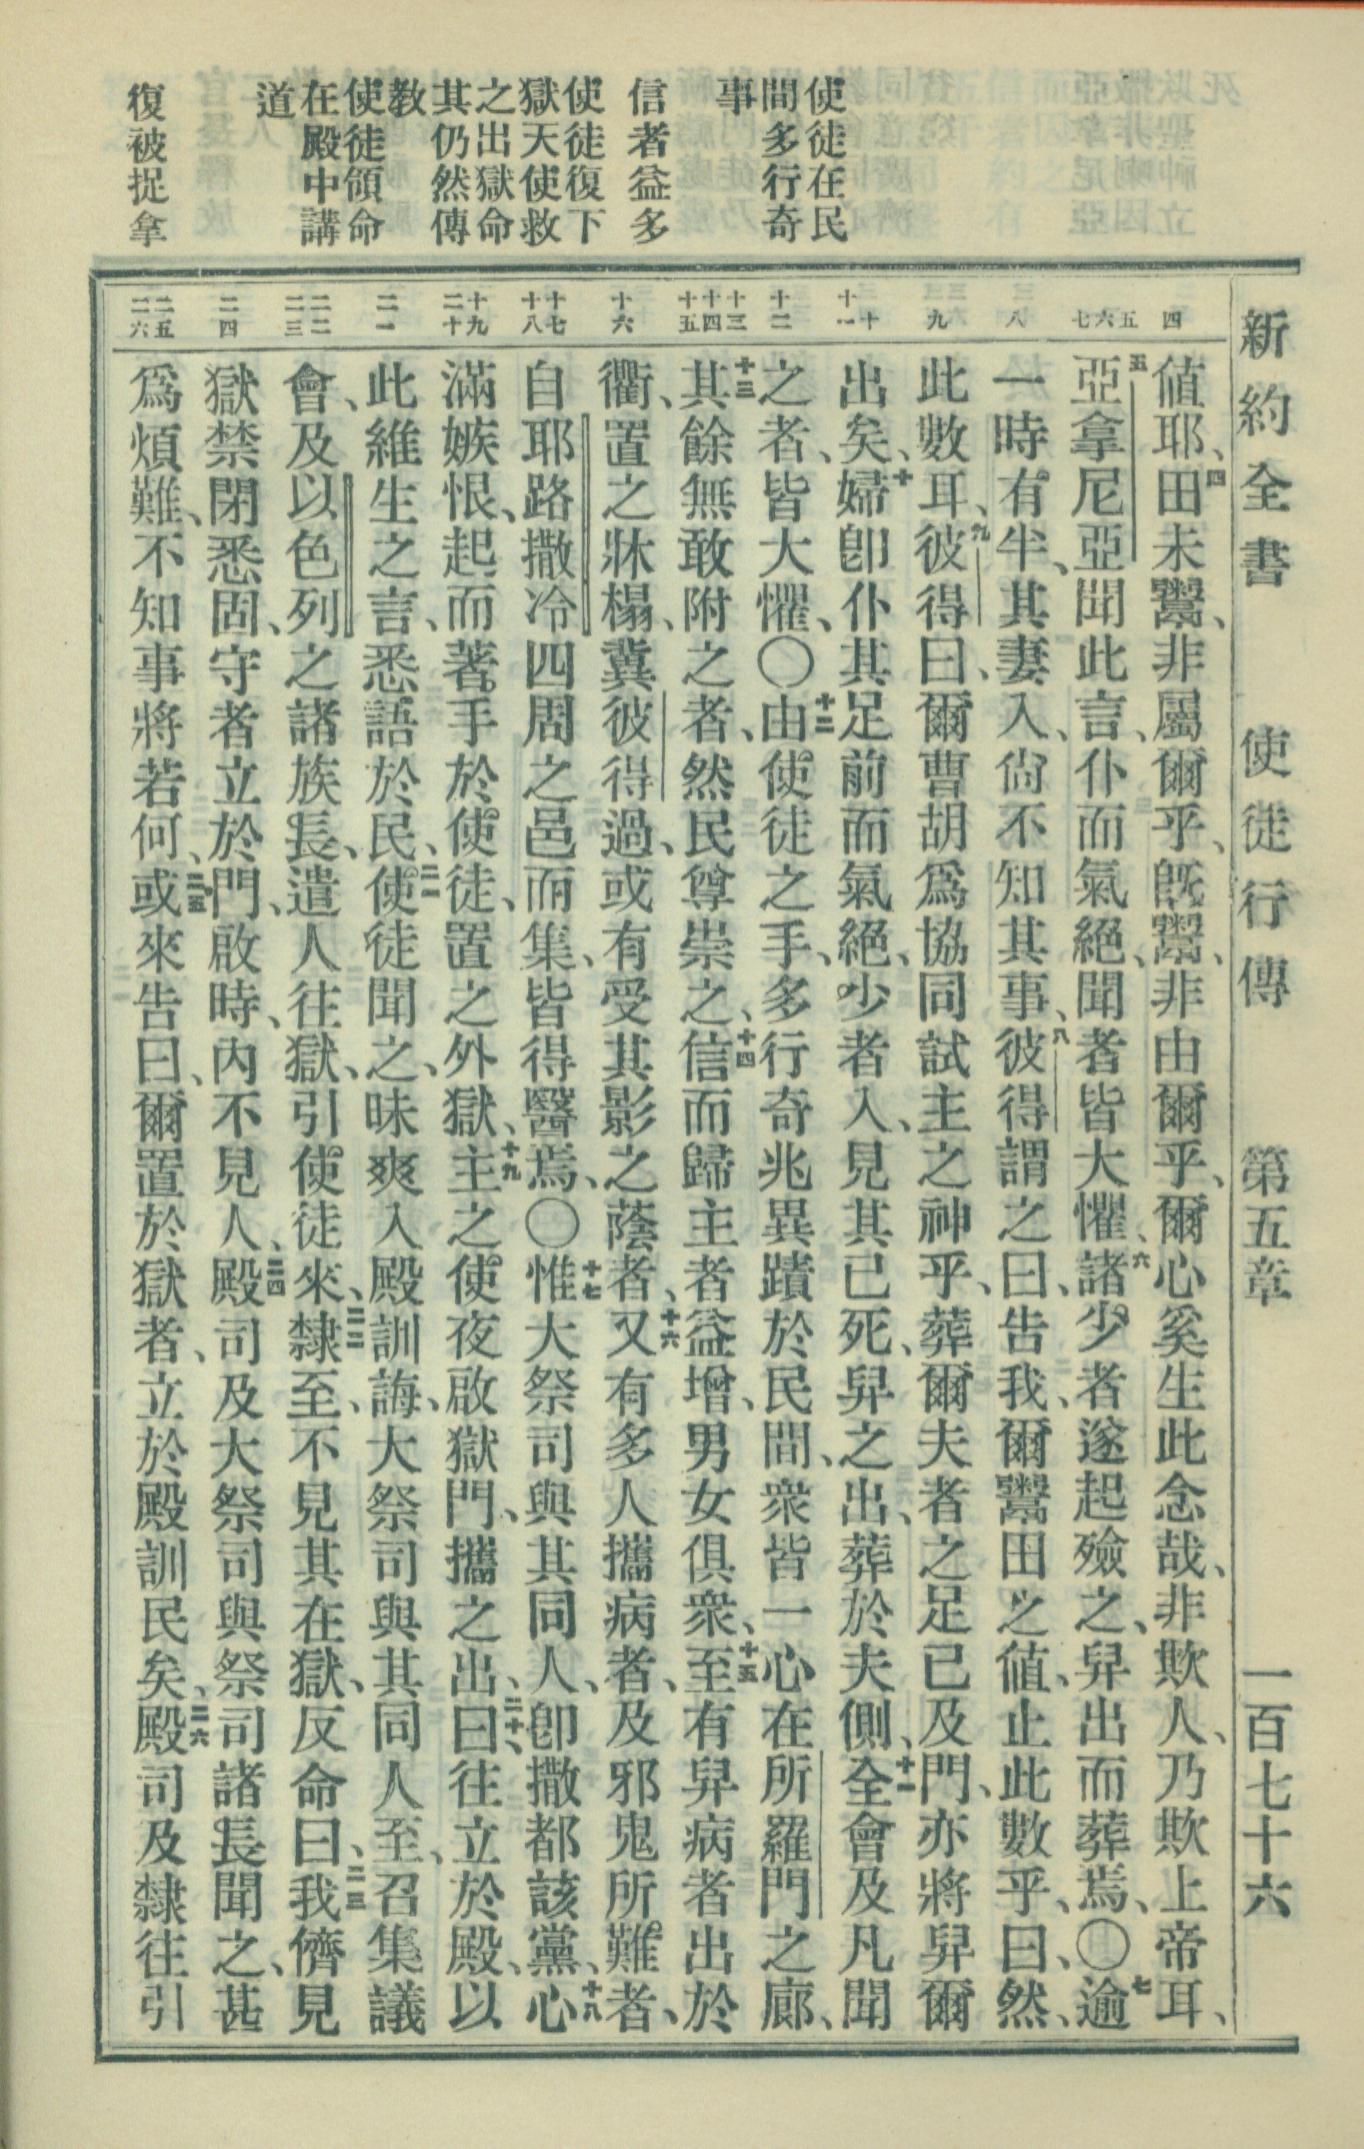 新約全書 使徒行傳 第五章 一百七十六
使徒在民
間多行奇
事
信者益多
使徒復下
獄天使救
之出獄命
其仍然傳
教
使徒領命
在殿中講
道
復被捉拿
四
五
六
七
八
九
十
十一
十二
十三
十四
十五
十六
十七
十八
十九
二十
二一
二二
二三
二四
二五
二六
值耶、四田未鬻、非屬爾乎、旣鬻、非由爾乎、爾心奚生此念哉、非欺人、乃欺上帝耳、
五亞拿尼亞聞此言、仆而氣絕、聞者皆大懼、六諸少者遂起殮之、舁出而葬焉、〇七逾
一時有半、其妻入、尙不知其事、八彼得謂之曰、告我、爾鬻田之值、止此數乎、曰、然、
此數耳、九彼得曰、爾曹胡爲協同試主之神乎、葬爾夫者之足已及門、亦將舁爾
出矣、十婦卽仆其足前而氣絕、少者入、見其已死、舁之出、葬於夫側、十一全會及凡聞
之者、皆大懼、〇十二由使徒之手、多行奇兆異蹟於民間、衆皆一心在所羅門之廊、
十三其餘無敢附之者、然民尊崇之、十四信而歸主者益增、男女俱衆、十五至有舁病者出於
衢、置之牀榻、冀彼得過、或有受其影之蔭者、十六又有多人攜病者、及邪鬼所難者、
自耶路撒冷四周之邑而集、皆得醫焉、〇十七惟大祭司與其同人、卽撒都該黨、十八心
滿嫉恨、起而著手於使徒、置之外獄、十九主之使夜啟獄門、攜之出、二十曰、往立於殿、以
此維生之言、悉語於民、二一使徒聞之、昧爽入殿訓誨、大祭司與其同人至、召集議
會、及以色列之諸族長、遣人往獄、引使徒來、二二隸至、不見其在獄、反命曰、二三我儕見
獄禁閉悉固、守者立於門、啟時、內不見人、二四殿司及大祭司與祭司諸長聞之、甚
爲煩難、不知事將若何、二五或來告曰、爾置於獄者、立於殿訓民矣、二六殿司及隸往引